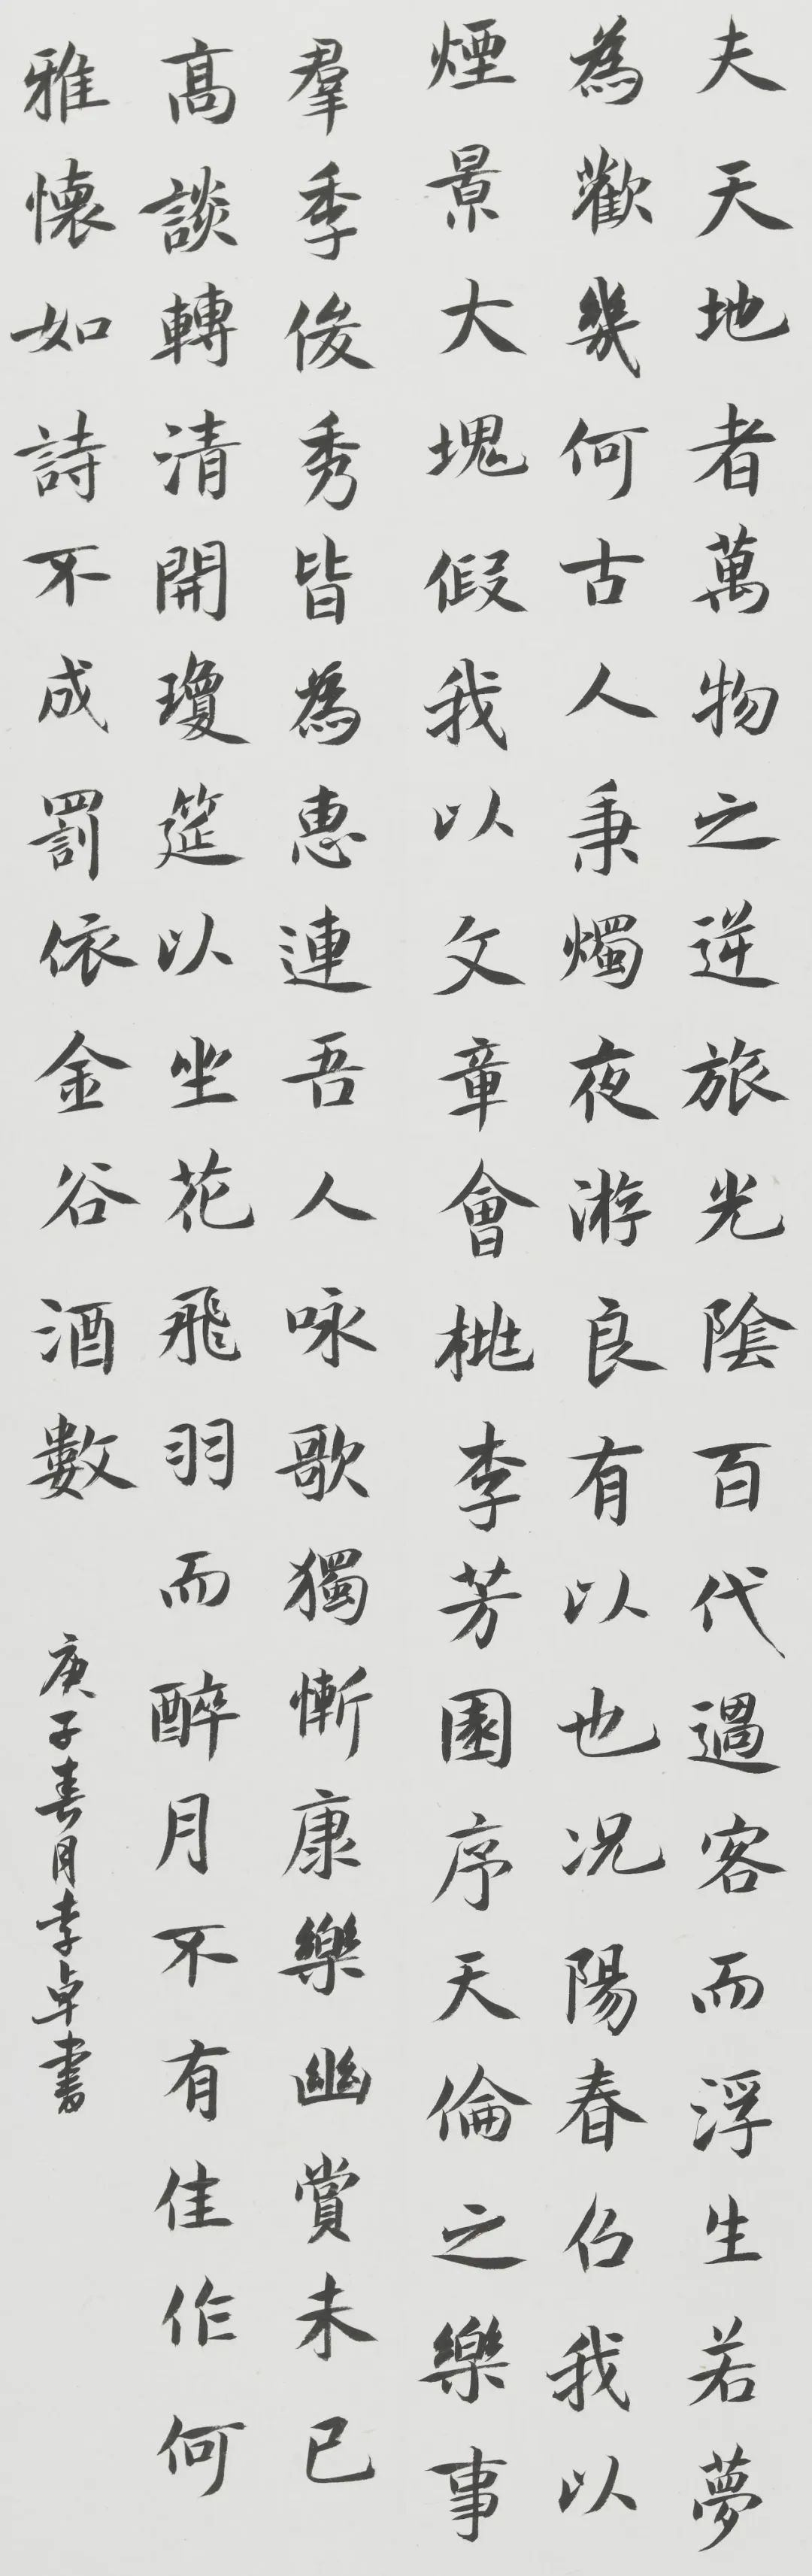 夫天地者萬物之逆旅光陰百代過客而浮生若夢
為歡幾何古人秉燭夜游良有以也况陽春召我以
煙景大塊假我以文章會桃李芳園序天倫之樂事
羣季俊秀皆為惠連吾人咏歌獨慚康樂幽賞未已
高談轉清開瓊筵以坐花飛羽而醉月不有佳作何
雅懷如詩不成罰依金谷酒數
庚子春月李卓書